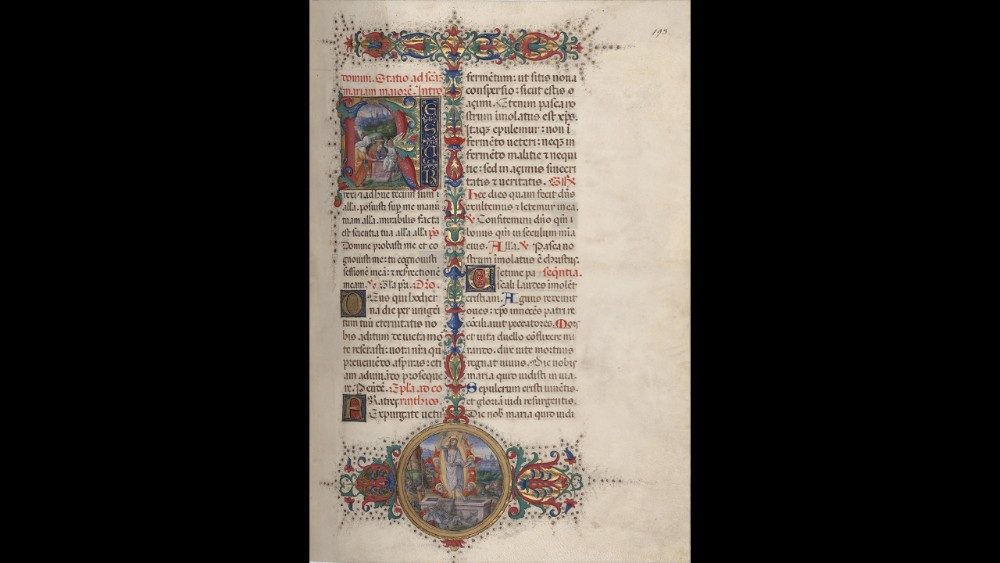 193
domini. Statio ad scãz
mariam maiorẽ. Intro
R ESUR
rexi ⁊ adhuc tecum sum
alla. posuisti sup me manũ
tuam alla. mirabilis facta
est scientia tua alla alla. ps
Domine probasti me et co
gnouisti me: tu cognouisti
sessionẽ meã: ⁊ resurrectionẽ
meam. Gla pri. Oro.
Deus qui hodier
na die per unigeni
tum tuũ eternitatis no
bis aditum deuicta mor
te reserasti: uota nrã que
preueniẽdo aspiras: eti
am adiuuãdo proseque
re. Per eũdẽ. Epla ad co
FRatres rinthios.
Expurgate uetus
fermẽtum: ut sitis noua
conspersio: sicut estis a
zimi. Etenim pasca no
strum imolatus est xp̃s.
Itaq; epulemur: non ĩ
fermẽto ueteri: neq; in
fermẽto malitie ⁊ nequi
tie: sed in azimis sinceri
tatis ⁊ ueritatis.
Hec dies quam fecit dñs
exultemus ⁊ letemur in ea.
℣ Confitemini dño qm̃
bonus qm̃ in seculum mia
eius. Alla. ℣ Pasca no
strum imolatus ẽ christus.
Uictime pa sequẽtia.
scali laudes imolẽt
cristiani. Agnus redemit
oues: xp̃s innocẽs patri re
cõciliauit peccatores. Mors
et uita duello cõflixere mi
rando. dux uite mortuus
regnat uiuus. Dic nobis
maria quid uidisti in uia.
Sepulcrum cristi uiuẽtis.
et gloriã uidi resurgentis.
Dic nob maria quid uidi